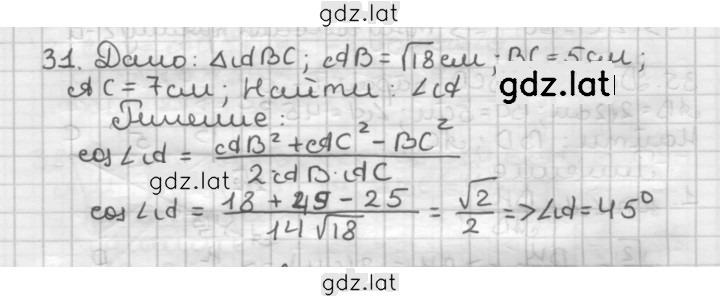 gdz.lat
31. Дано: ΔABC; AB = √18 см; BC = 5 см;
AC = 7 см; Найти: ∠A
gdz.lat
Решение:
cos∠A = (AB² + AC² - BC²) / (2AB·AC)
gdz.lat
cos∠A = (18 + 49 - 25) / (14√18) = √2/2 => ∠A = 45°
gdz.lat